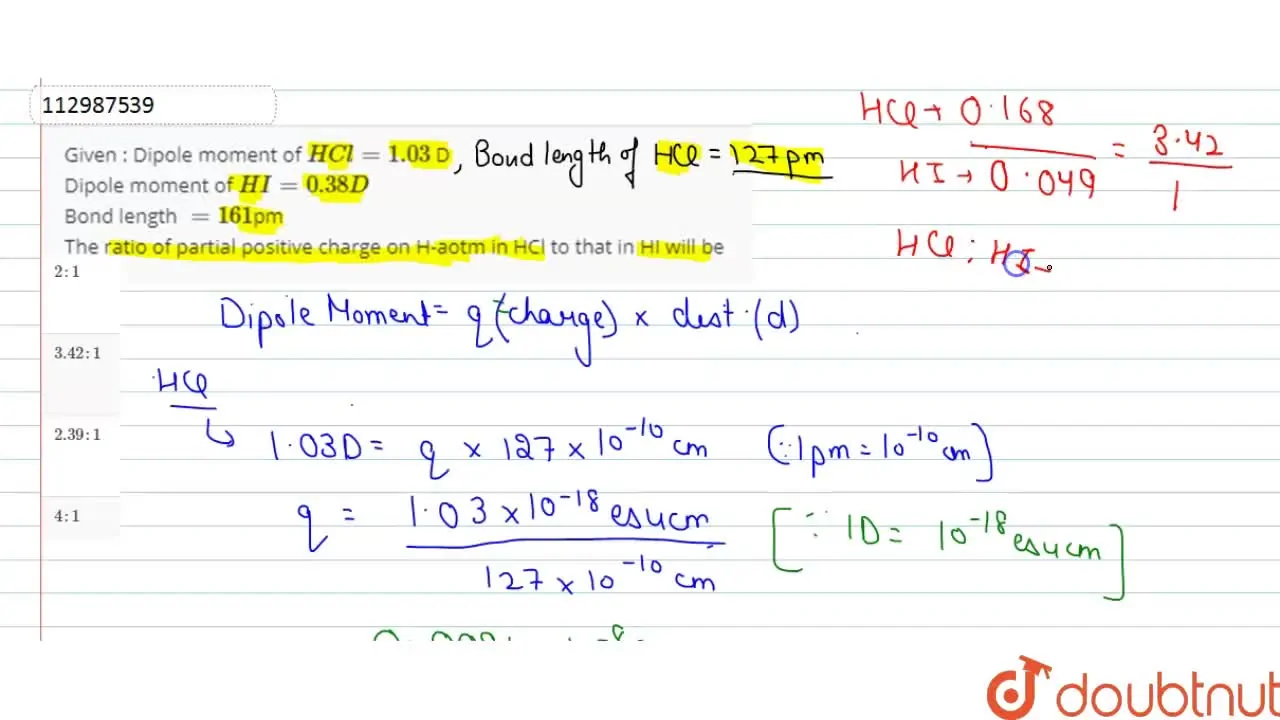 112987539
Given : Dipole moment of HCl = 1.03 D , Bond length of HCl = 127 pm
Dipole moment of HI = 0.38D
Bond length = 161pm
The ratio of partial positive charge on H-aotm in HCl to that in HI will be
2:1
3.42:1
2.39:1
4:1
HCl → 0.168
HI → 0.049
= 3.42
1
HCl : HI
Dipole Moment = q (charge) × dist. (d)
HCl
1.03D = q × 127 × 10⁻¹⁰ cm (∵ 1 pm = 10⁻¹⁰ cm]
q = 1.03 × 10⁻¹⁸ esu cm
127 × 10⁻¹⁰ cm
[∵ 1D = 10⁻¹⁸ esu cm]
doubtnut